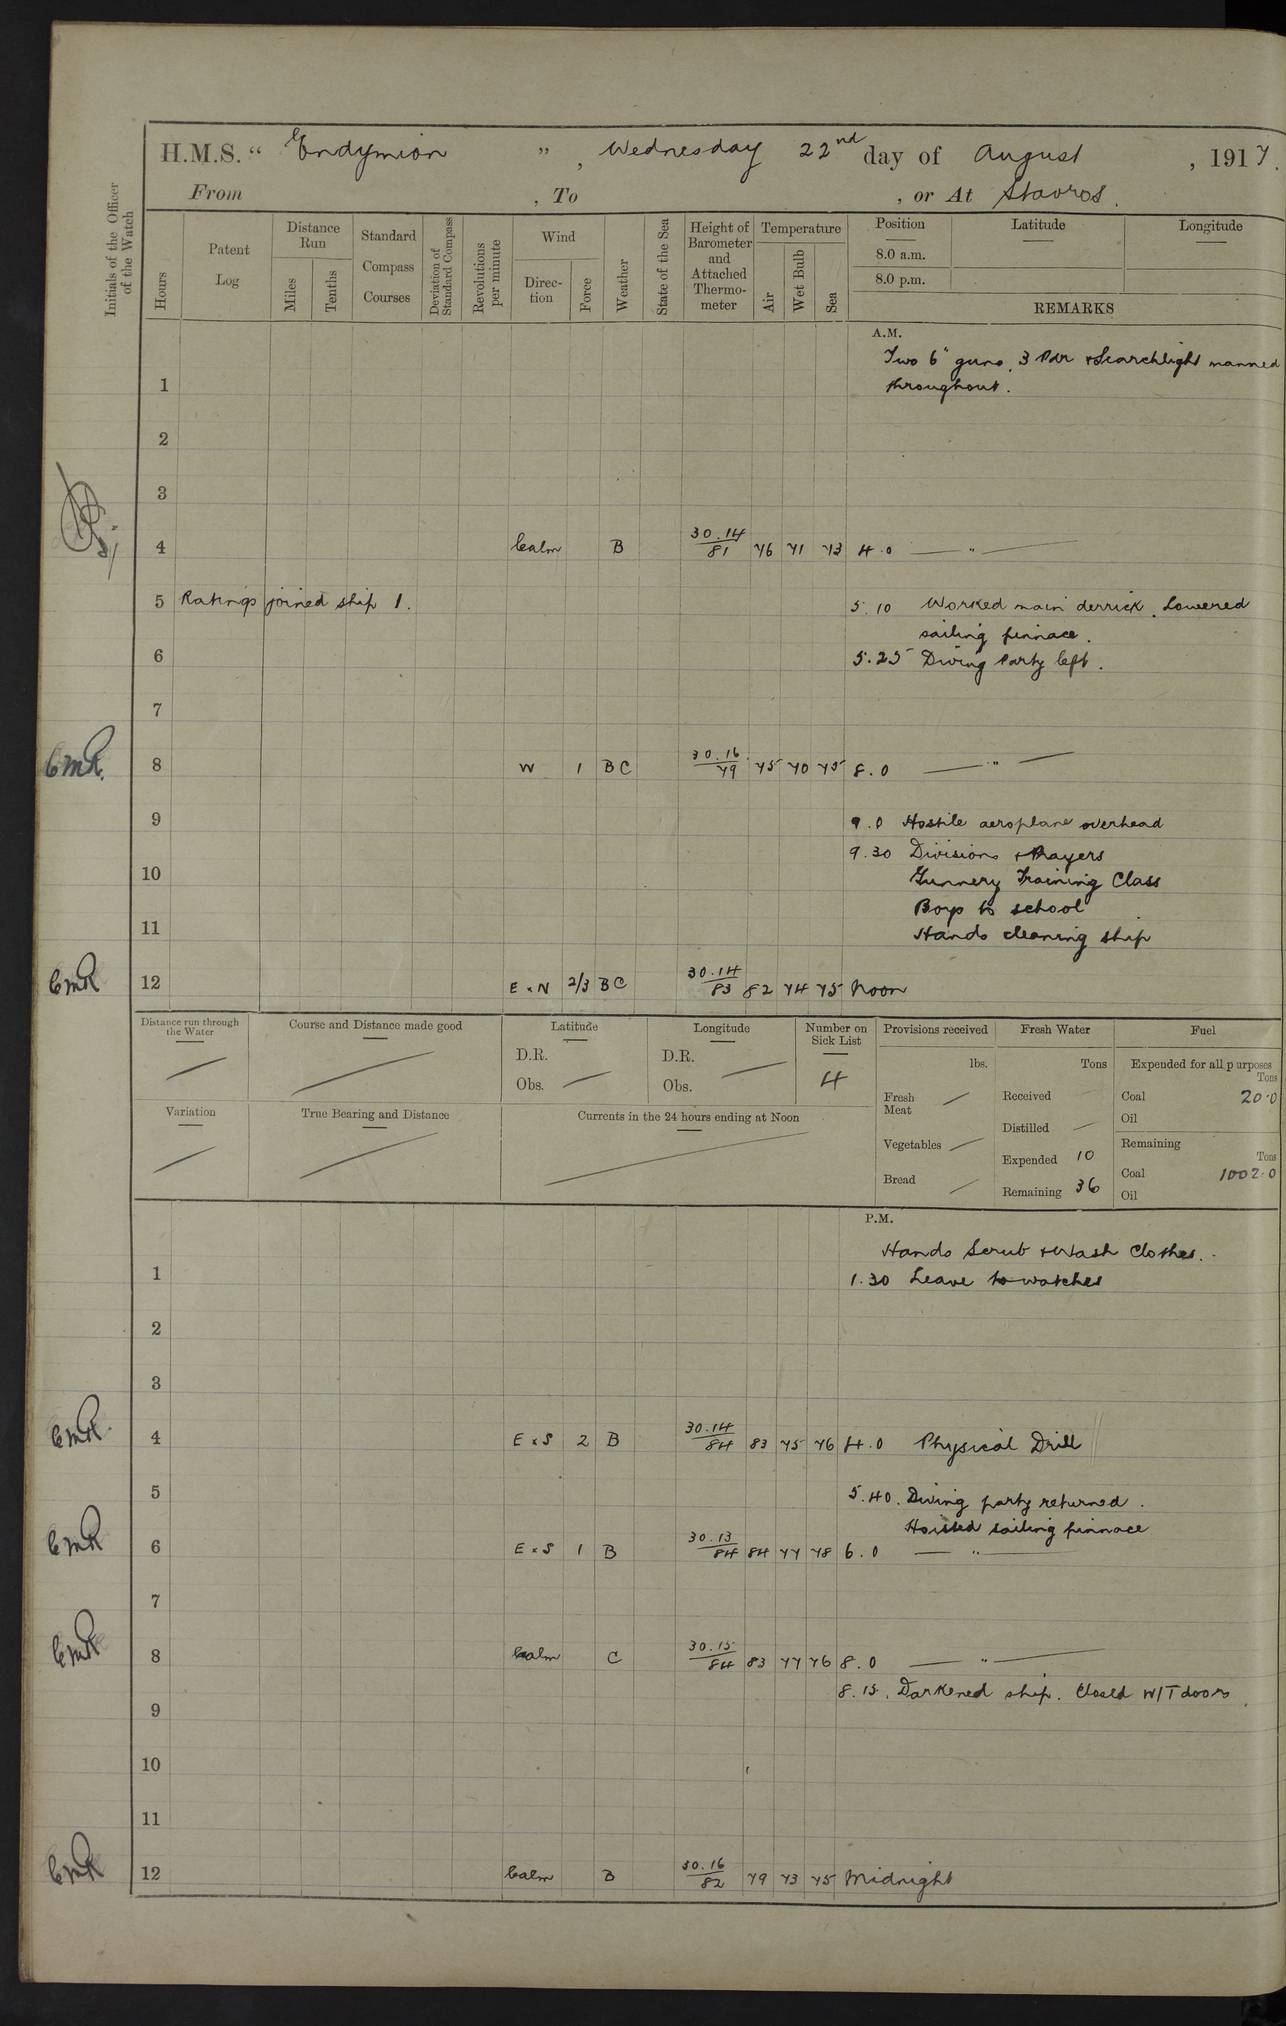 H.M.S. "Endymion", Wednesday 22nd day of August, 1917.
From , To , or At Stavros.
Initials of the Officer of the Watch
Hours
Patent Log
Distance Run
Miles
Tenths
Standard Compass Courses
Deviation of Standard Compass
Revolutions per minute
Wind
Direction
Force
Weather
State of the Sea
Height of Barometer and Attached Thermometer
Temperature
Air
Wet Bulb
Sea
Position
8.0 a.m.
8.0 p.m.
Latitude
Longitude
REMARKS
A.M.
Two 6" guns, 3 Pdr & Searchlight manned
1 throughout.
2
3
4 Calm B 30.14/81 76 71 73 4.0 — " —
5 Ratings joined ship 1. 5.10 Worked main derrick. Lowered
sailing pinnace.
6 5.25 Diving Party left.
7
CMR. 8 W 1 BC 30.16/79 75 70 75 8.0 — " —
9 9.0 Hostile aeroplane overhead
9.30 Divisions & Prayers
10 Gunnery Training Class
Boys to school
11 Hands cleaning ship
CMR 12 E x N 2/3 BC 30.14/83 82 74 75 Noon
Distance run through the Water
Course and Distance made good
Latitude
D.R.
Obs.
Longitude
D.R.
Obs.
Number on Sick List
4
Variation
True Bearing and Distance
Currents in the 24 hours ending at Noon
Provisions received
lbs.
Fresh Meat
Vegetables
Bread
Fresh Water
Tons
Received
Distilled
Expended 10
Remaining 36
Fuel
Expended for all purposes
Tons
Coal 20.0
Oil
Remaining
Tons
Coal 1002.0
Oil
P.M.
Hands Scrub & Wash Clothes.
1 1.30 Leave to watches
2
3
CMR 4 E x S 2 B 30.14/84 83 75 76 4.0 Physical Drill
5 5.40. Diving party returned.
Hoisted sailing pinnace
CMR 6 E x S 1 B 30.13/84 84 77 78 6.0 — " —
7
CMR 8 Calm C 30.15/84 83 77 76 8.0 — " —
8.15. Darkened ship. Closed W/T doors.
9
10
11
CMR 12 Calm B 30.16/82 79 73 75 Midnight